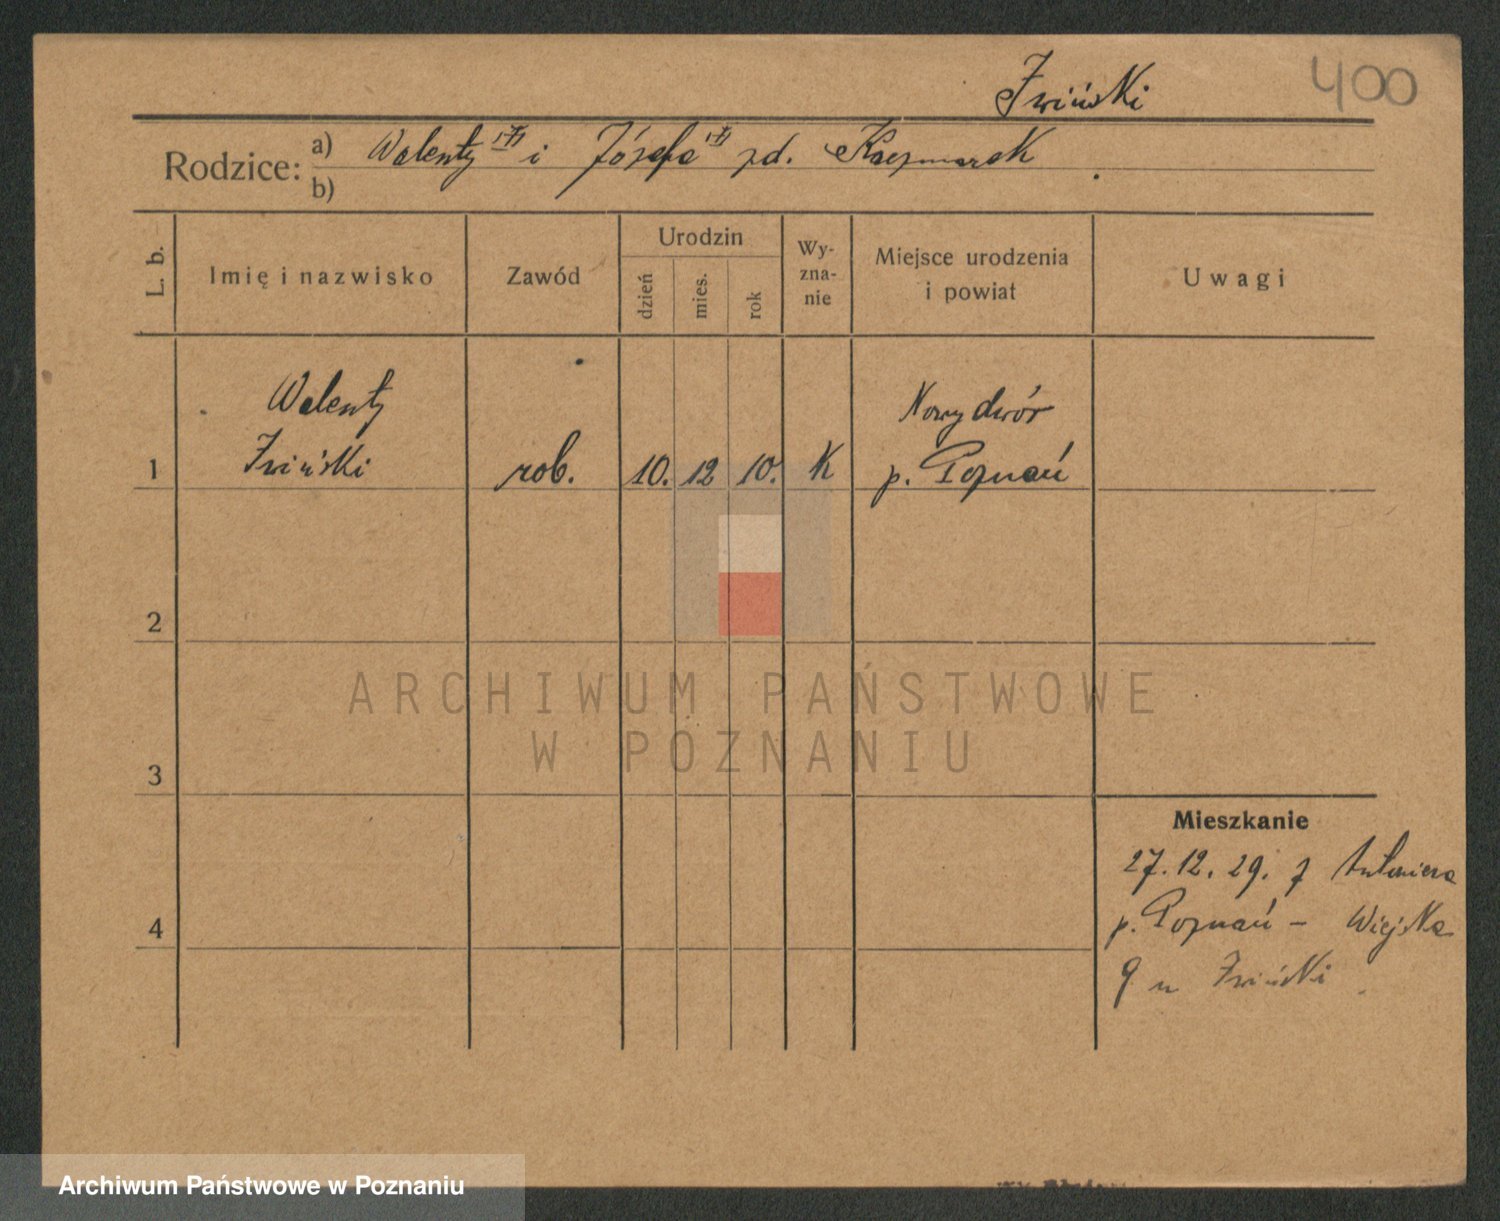 Iwiński
400
Rodzice: a) Walenty i Józefa zd. Kaczmarek
b)
L. b.
Imię i nazwisko
Zawód
Urodzin
dzień
mies.
rok
Wy-
zna-
nie
Miejsce urodzenia
i powiat
Uwagi
Walenty
Nowydwór
1 Iwiński rob. 10. 12 10. K p. Poznań
2
3
4
ARCHIWUM PAŃSTWOWE
W POZNANIU
Mieszkanie
27.12.29. z
p. Poznań - Wiejska
9 u Iwiński
Archiwum Państwowe w Poznaniu